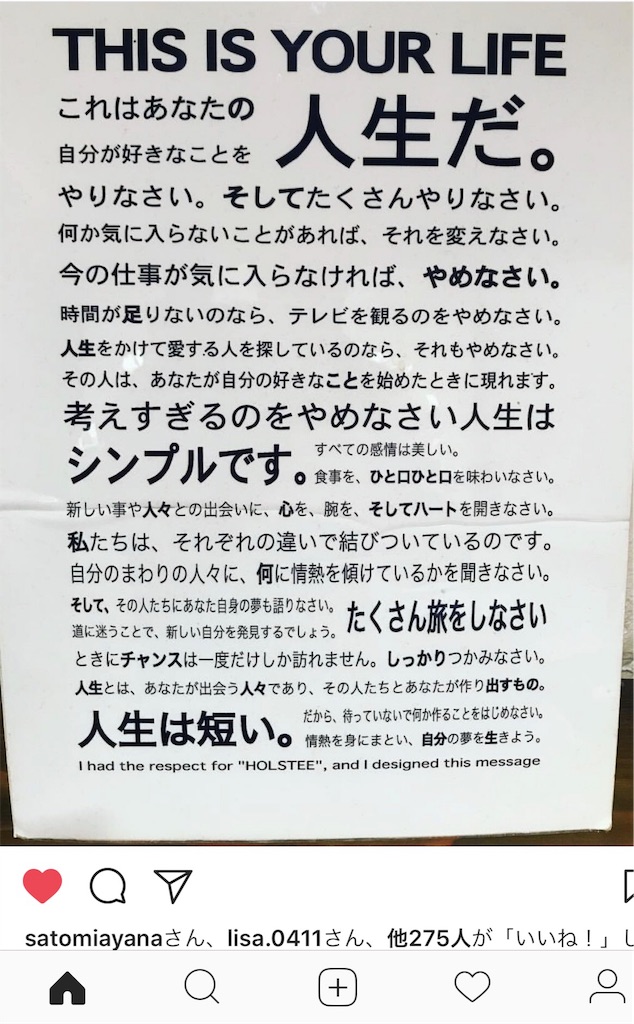 THIS IS YOUR LIFE
これはあなたの
人生だ。
自分が好きなことを
やりなさい。そしてたくさんやりなさい。
何か気に入らないことがあれば、それを変えなさい。
今の仕事が気に入らなければ、やめなさい。
時間が足りないのなら、テレビを観るのをやめなさい。
人生をかけて愛する人を探しているのなら、それもやめなさい。
その人は、あなたが自分の好きなことを始めたときに現れます。
考えすぎるのをやめなさい人生は
シンプルです。
すべての感情は美しい。
食事を、ひと口ひと口を味わいなさい。
新しい事や人々との出会いに、心を、腕を、そしてハートを開きなさい。
私たちは、それぞれの違いで結びついているのです。
自分のまわりの人々に、何に情熱を傾けているかを聞きなさい。
そして、その人たちにあなた自身の夢も語りなさい。
たくさん旅をしなさい
道に迷うことで、新しい自分を発見するでしょう。
ときにチャンスは一度だけしか訪れません。しっかりつかみなさい。
人生とは、あなたが出会う人々であり、その人たちとあなたが作り出すもの。
人生は短い。
だから、待っていないで何か作ることをはじめなさい。
情熱を身にまとい、自分の夢を生きよう。
I had the respect for "HOLSTEE", and I designed this message
satomiayanaさん、lisa.0411さん、他275人が「いいね！」し